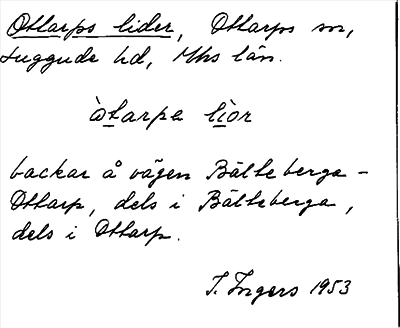 Ottarps lider, Ottarps sn,
Luggude hd, Mhs län.
àtarpa lìor
backar å vägen Bälteberga-
Ottarp, dels i Bälteberga,
dels i Ottarp.
I. Ingers 1953